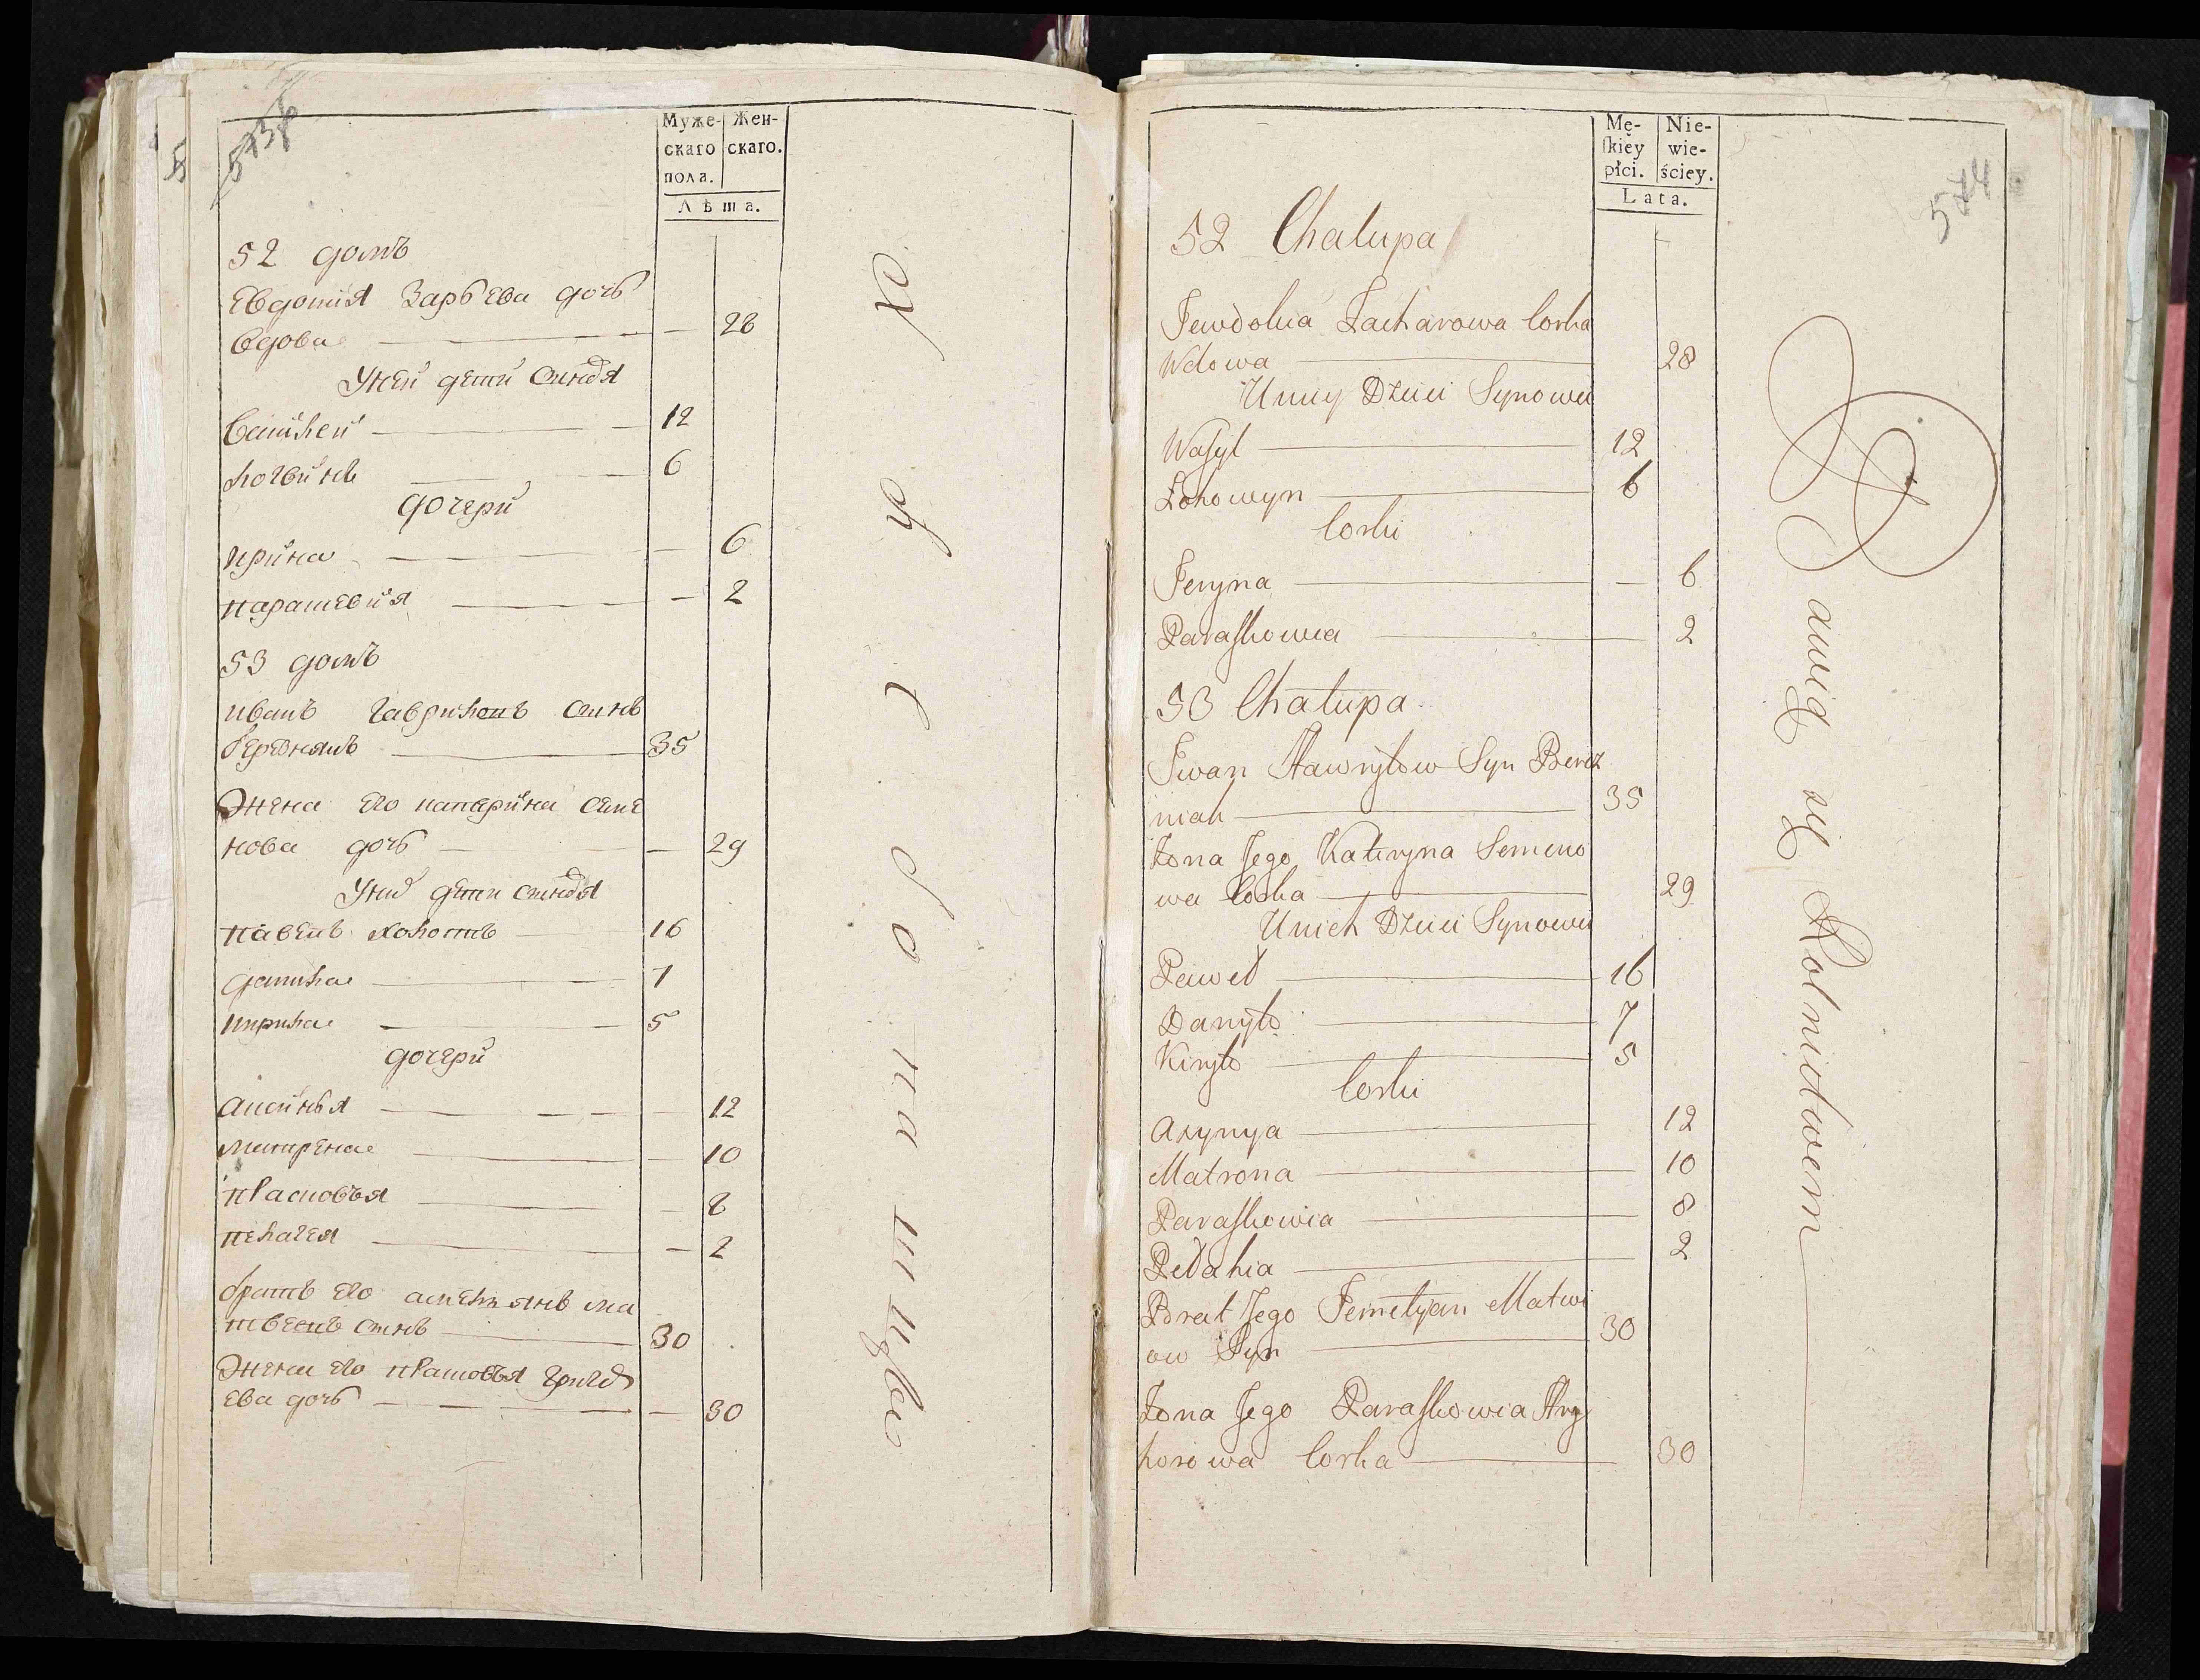 573
Муже- Жен-
скаго скаго.
пола.
Лѣта.
52 домъ
Евдотия Зарьева дочь
вдова — — 28
У ней дети сыновя
Василей — 12
Логвинъ — 6
дочери
Ирина — — 6
Парасцевия — — 2
53 домъ
Иванъ Гавриловъ сынъ
Березнякъ — 35
Жена его катерина семе
нова дочь — — 29
У них дети сыновя
Павелъ холостъ — 16
данила — 7
кирила — 5
дочери
Аксинья — — 12
матрена — — 10
Прасковья — — 8
Пелагея — — 2
братъ его амельянъ ма
твеевъ сынъ — 30
Жена его прасковья григо
ева дочь — — 30
хлебопашцы
Mę- Nie-
skiey wie-
płci. ściey.
Lata.
574
52 Chalupa
Jewdokia Zacharowa Corka
Wdowa — 28
U niey Dzieci Synowie
Wasyl — 12
Lohowyn — 6
Corki
Jeryna — — 6
Paraskowia — 2
53 Chalupa
Iwan Hawryłow Syn Berez
niak — 35
Zona Jego Kateryna Semeno
wa Corka — 29
U nich Dzieci Synowie
Paweł — 16
Danyło — 7
Kiryło — 5
Corki
Axynya — 12
Matrona — 10
Paraskowia — 8
Pełahia — 2
Brat Jego Jemelyan Matwi
ow Syn — 30
Zona Jego Paraskowia Hry
horowa Corka — 30
Bawią się Rolnictwem